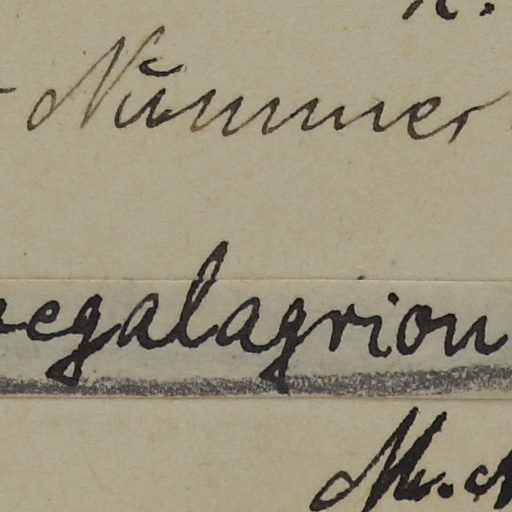 Nummer
egalagrion
M.